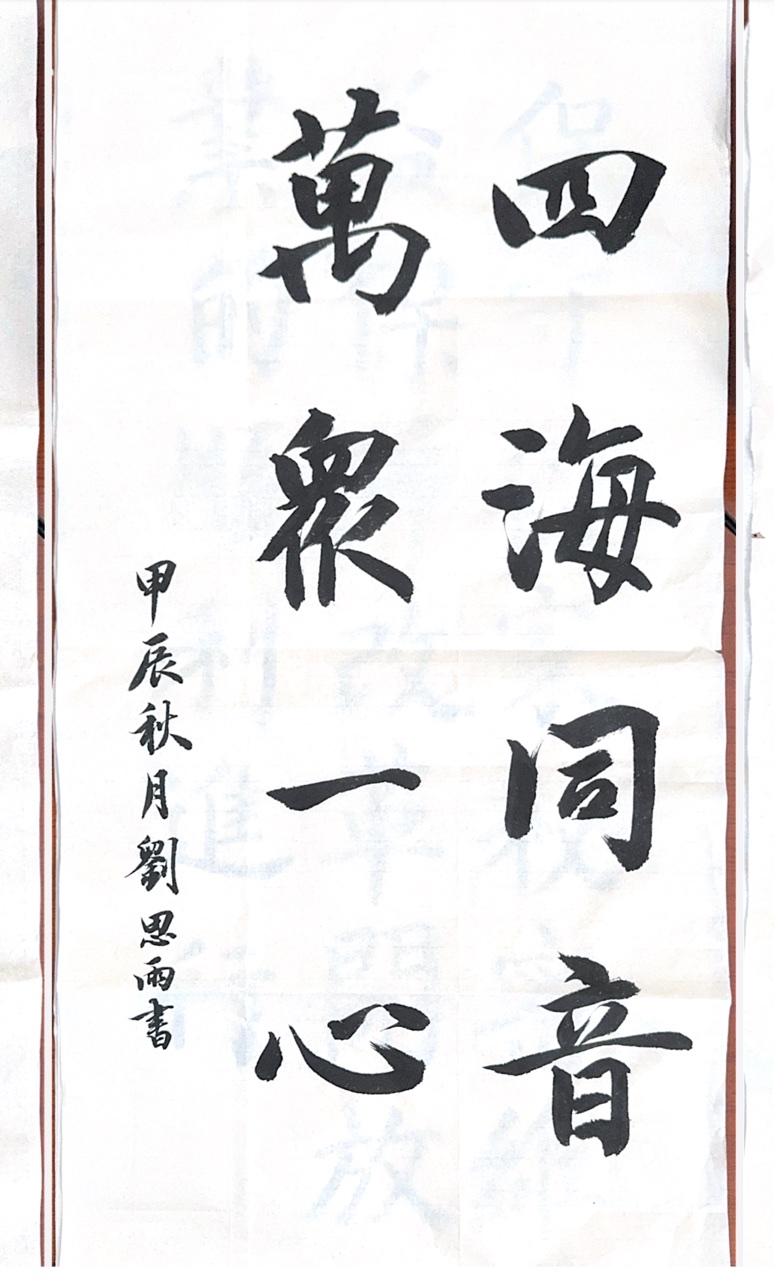 四海同音
萬眾一心
甲辰秋月劉思雨書